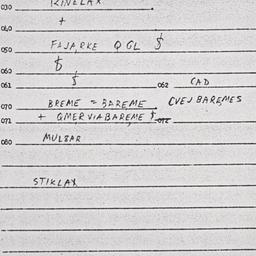 030 KINELAX
040 +
050 FAJARKE QGL $
060 $
061 $ 062 CAD
070 BREME = BAREME CVEJ BAREMES
071 + QMERVIABAREME $ 072
080 MULBAR
STIKLAX